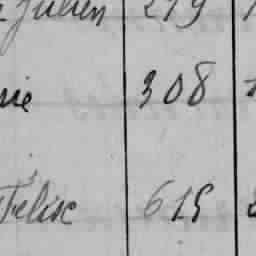 Julien 219
308
Felix 615